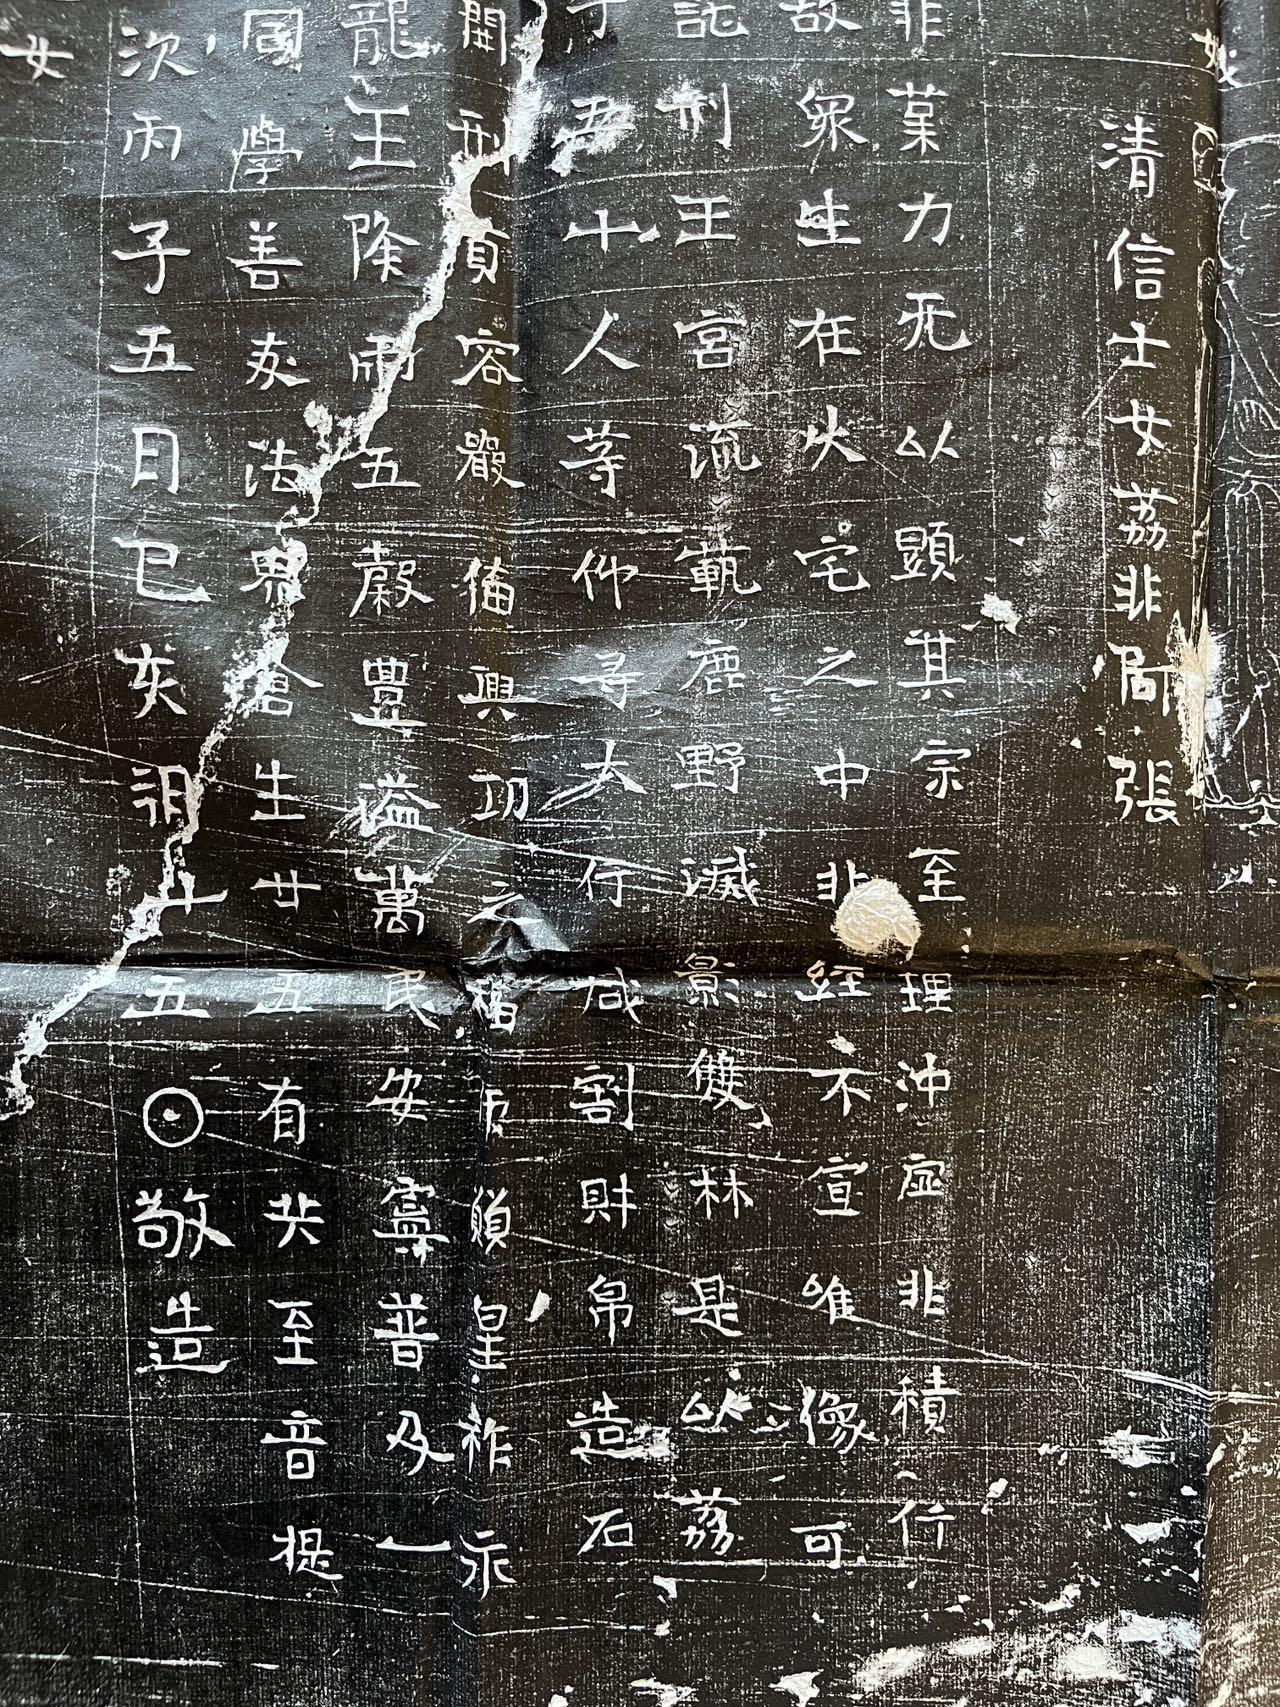 清信士女荔非周張
非菓力无以顯其宗至理沖虛非積行
故衆生在火宅之中非經不宣唯像可
託刑王宮流範鹿野滅景雙林是以荔
吾十人等仰尋大行咸割財帛造石
開刑真容嚴俻興功之福願皇祚永
龍王降雨五穀豊溢萬民安寧普及一
國學善友法界倉生廿五有共至菩提
次丙子五日己亥朔廿五⊙敬造
女